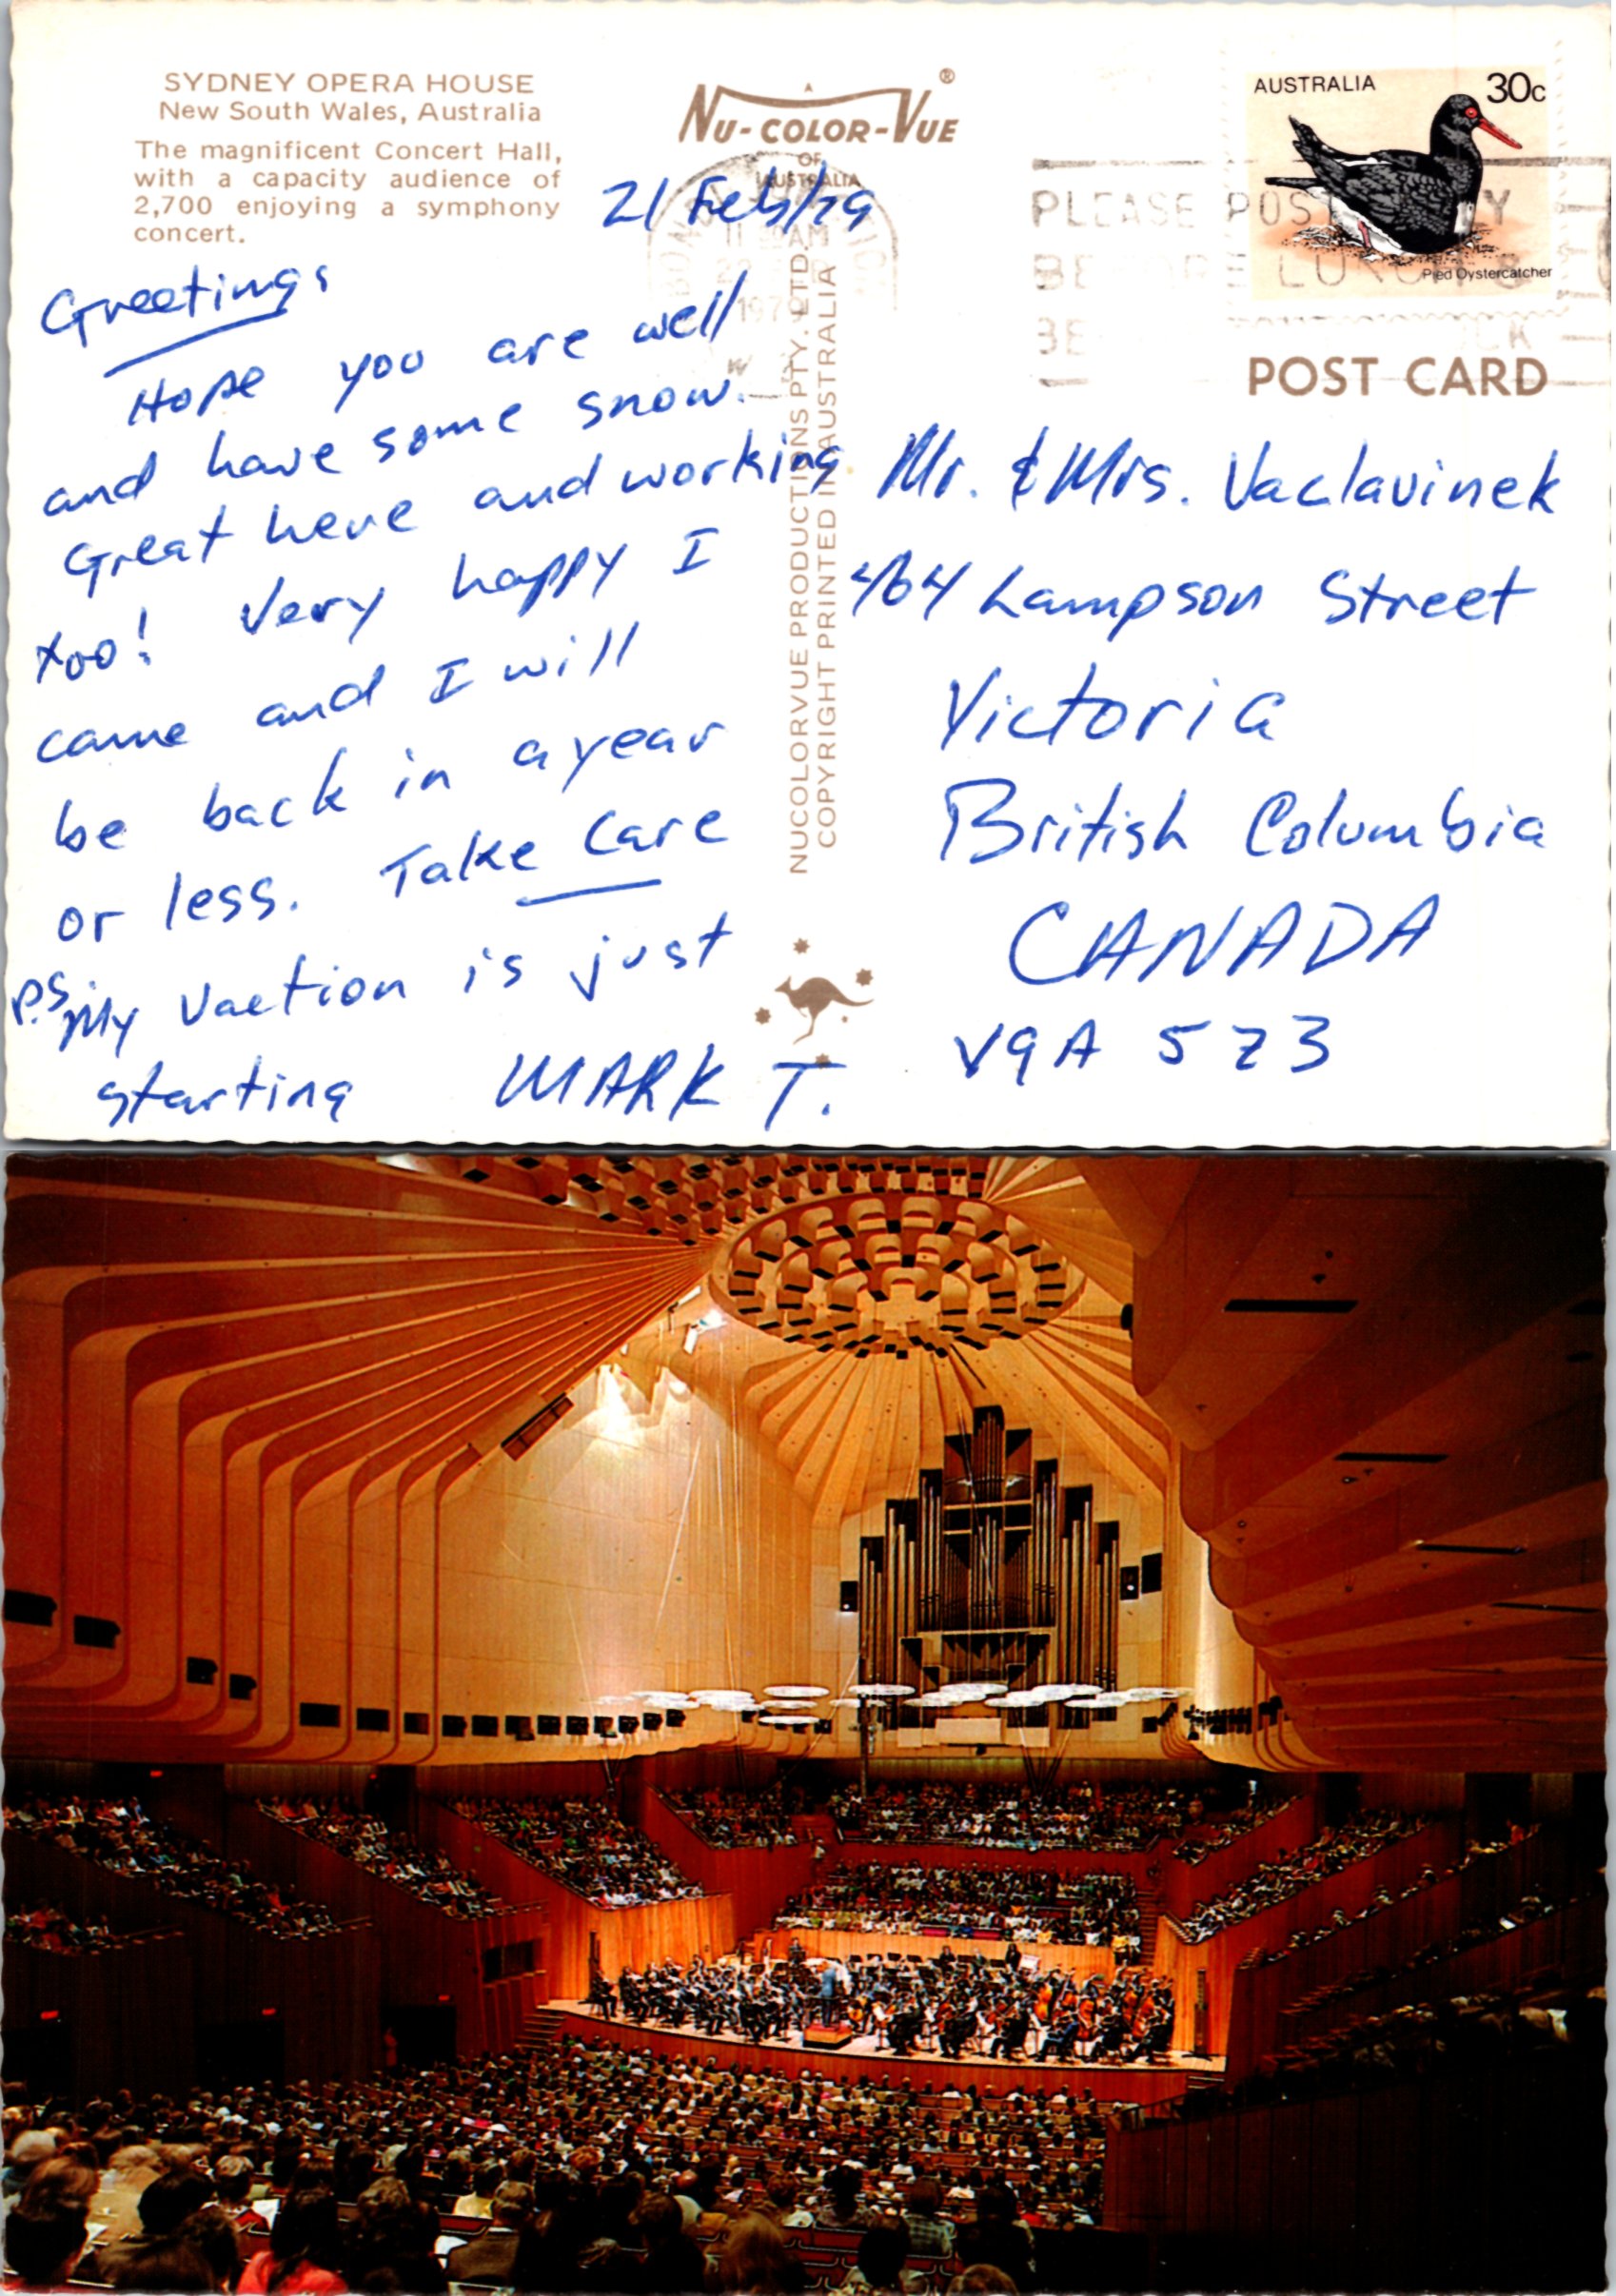 SYDNEY OPERA HOUSE
New South Wales, Australia
The magnificent Concert Hall,
with a capacity audience of
2,700 enjoying a symphony
concert.
A
NU-COLOR-VUE ®
OF
AUSTRALIA
21 Feb/79
11 AM
197
AUSTRALIA 30c
Pied Oystercatcher
PLEASE POST
POST CARD
Greetings
Hope you are well
and have some snow.
Great here and working
too! Very happy I
came and I will
be back in a year
or less. Take Care
P.S. My vaction is just
starting MARK T.
NUCOLORVUE PRODUCTIONS PTY. LTD.
COPYRIGHT PRINTED IN AUSTRALIA
Mr. & Mrs. Vaclavinek
464 Lampson Street
Victoria
British Columbia
CANADA
V9A 5Z3